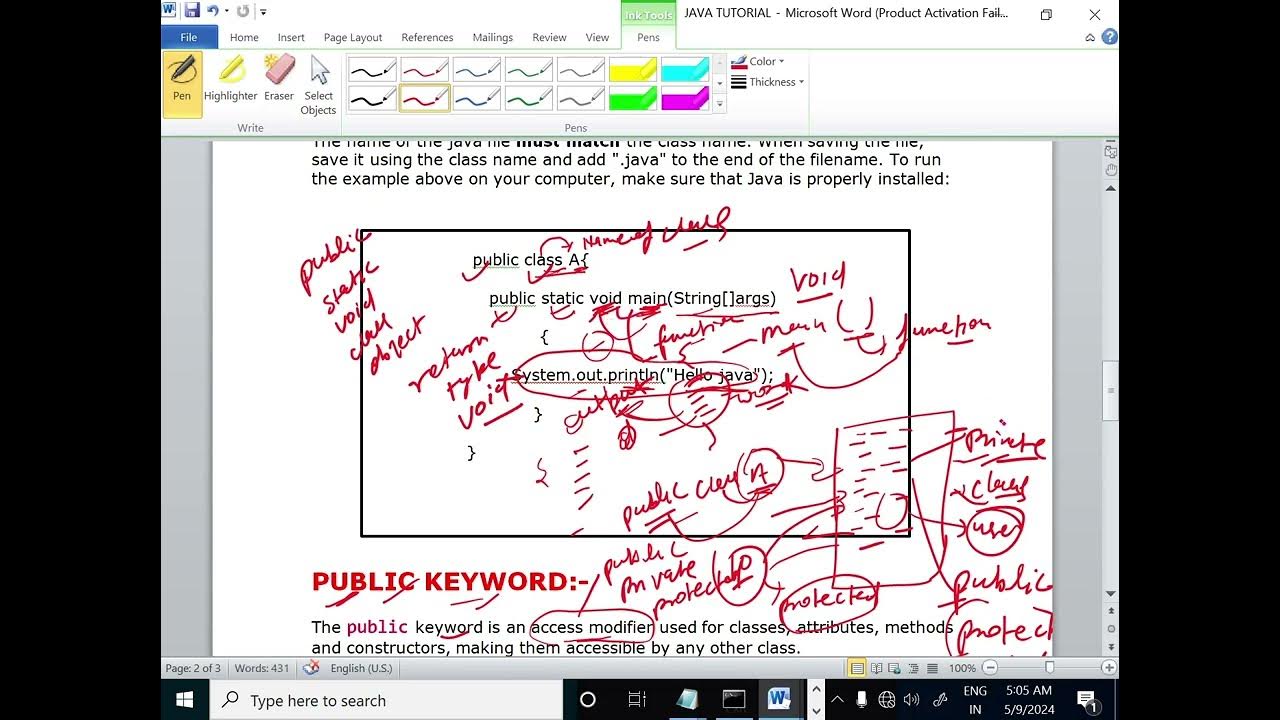 Ink Tools
JAVA TUTORIAL - Microsoft Word (Product Activation Fail...
File Home Insert Page Layout References Mailings Review View Pens
Pen Highlighter Eraser Select Objects
Color
Thickness
Write
Pens
The name of the java file must match the class name. When saving the file,
save it using the class name and add ".java" to the end of the filename. To run
the example above on your computer, make sure that Java is properly installed:
public
static
void
class
object
Name of class
public class A{
public static void main(String[]args)
void
{
function
main ( )
function
return
type
void
System.out.println("Hello java");
output
work
}
}
public class A
private
class
user
public
private
protected
protected
public
protect
PUBLIC KEYWORD:-
The public keyword is an access modifier used for classes, attributes, methods
and constructors, making them accessible by any other class.
Page: 2 of 3 Words: 431 English (U.S.) 100%
Type here to search
ENG
IN
5:05 AM
5/9/2024
1